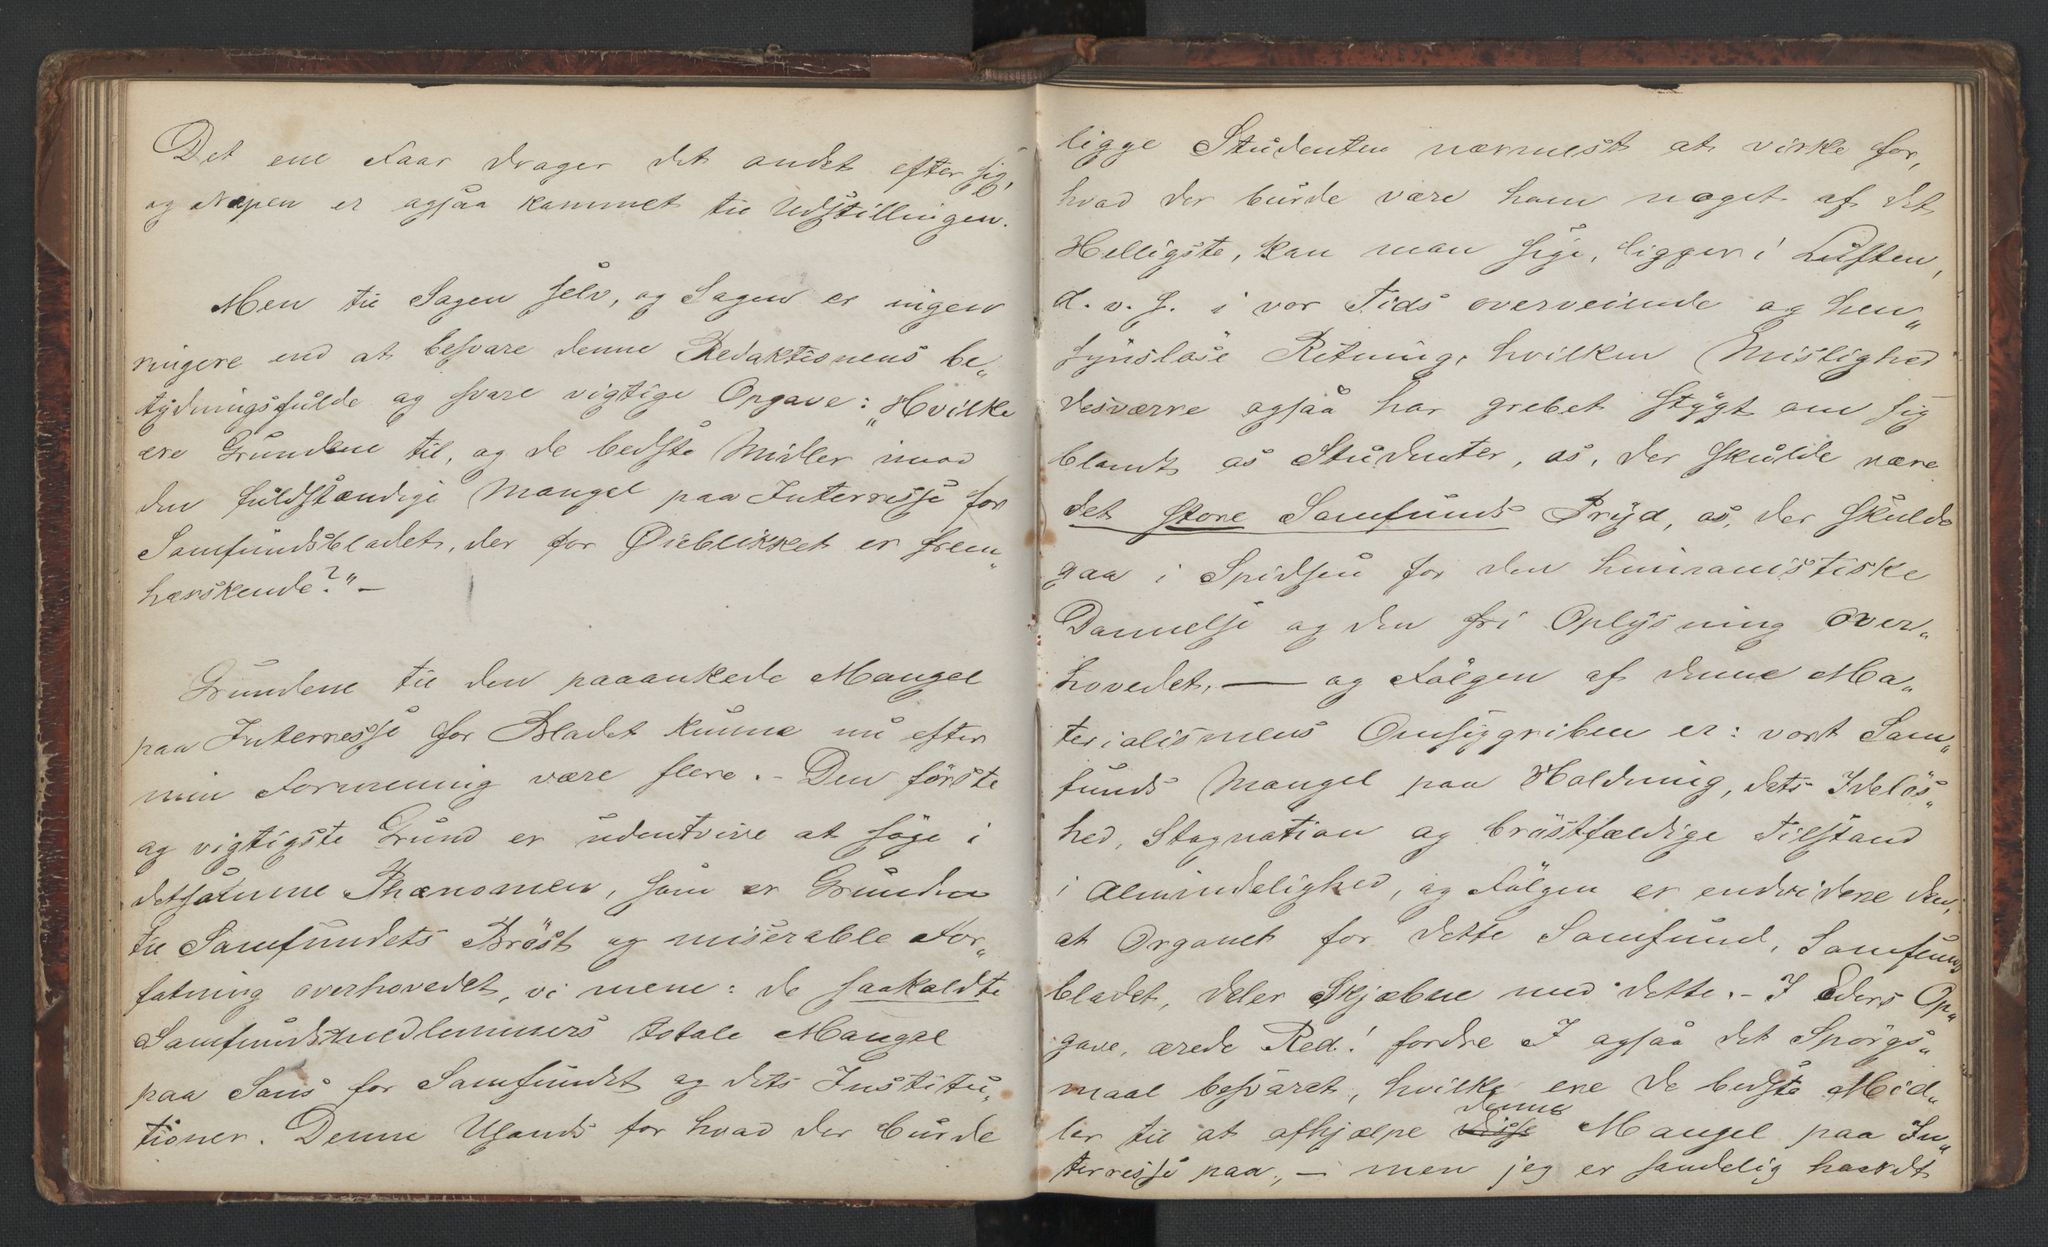 Det ene Faar drager det andet efter sig,
og Næpen er ogsaa kommet til Udstillingen.
Men til Sagen selv, og Sagen er ingen
ringere end at besvare denne Redaktionens be„
tydningsfulde og svare vigtige Opgave: „Hvilke
ere Grundene til, og de bedste Midler imod
den fuldstændige Mangel paa Interresse for
Samfundsbladet, der for Øieblikket er frem„
herskende?“ —
Grundene til den paaankede Mangel
paa Interresse for Bladet kunne nu efter
min Formening være flere. - Den første
og vigtigste Grund er udentvivl at søge i
detsamme Phænomen, som er Grunden
til Samfundets Bröst og miserable For„
fatning overhovedet, vi mene: de saakaldte
Samfundsmedlemmers totale Mangel
paa Sans for Samfundet og dets Institu„
tioner. Denne Usands for hvad der burde
ligge Studenten nærmest at virke for,
hvad der burde være ham noget af det
Helligste, kan man sige, ligger i Luften,
d. v. s. i vor Tids overveiende og hen„
synsløse Retning, hvilken Mislighed
desværre ogsaa har grebet stygt om sig
blandt os Studenter, os, der skulde være
det store Samfunds Pryd, os, der skulde
gaa i Spidsen for den humanistiske
Dannelse og den fri Oplysning over„
hovedet, — og Fölgen af denne Ma„
terialismens Omsiggriben er: vort Sam„
funds Mangel paa Holdning, dets Ideløs„
hed, Stagnation og bröstfældige Tilstand
i Almindelighed, og Fölgen er endvidere den,
at Organet for dette Samfund, Samfunds
bladet, deler Skjæbne med dette. - I Eders Op„
gave, ærede Red.! fordre I ogsaa det Spörgs„
maal besvaret, hvilke ere de bedste Mid„
ler til at afhjælpe disse denne Mangel paa In„
terresse paa, — men jeg er sandelig haardt